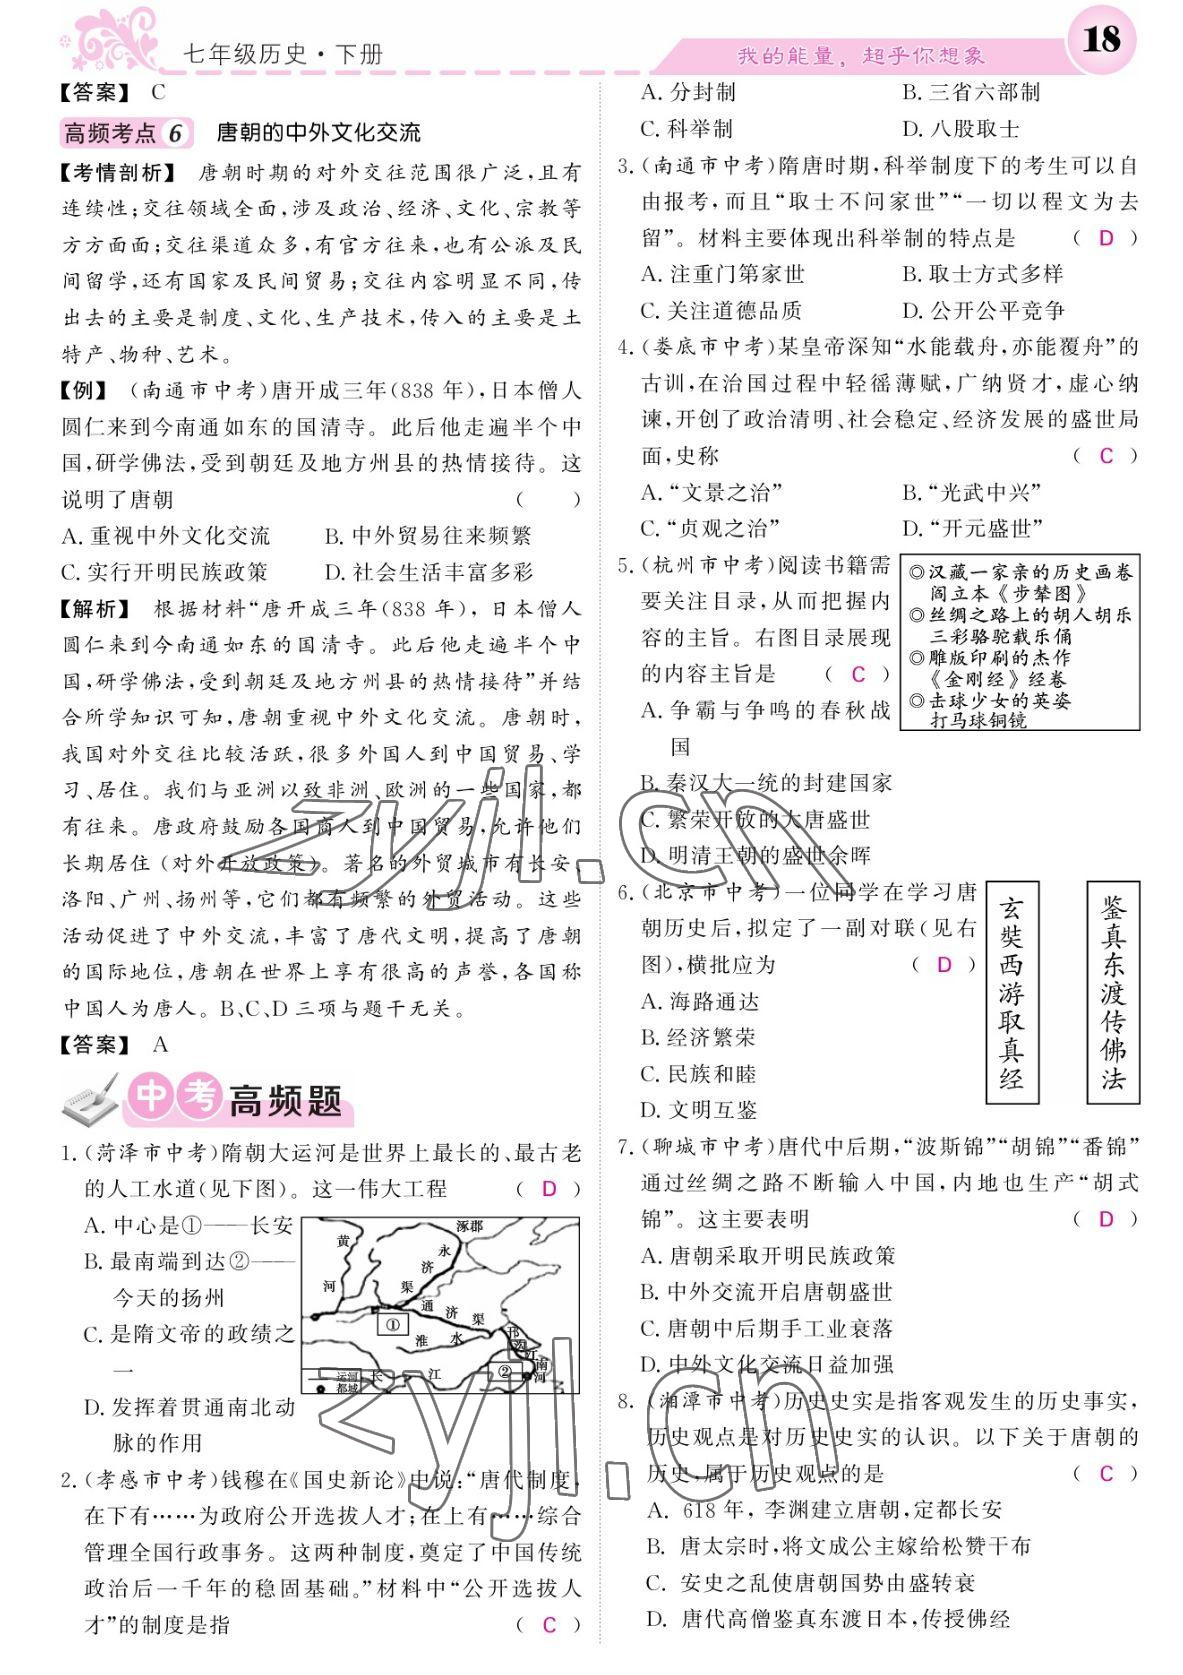 七年级历史·下册
我的能量，超乎你想象
18
【答案】 C
高频考点 6 唐朝的中外文化交流
【考情剖析】 唐朝时期的对外交往范围很广泛,且有
连续性;交往领域全面,涉及政治、经济、文化、宗教等
方方面面;交往渠道众多,有官方往来,也有公派及民
间留学,还有国家及民间贸易;交往内容明显不同,传
出去的主要是制度、文化、生产技术,传入的主要是土
特产、物种、艺术。
【例】 (南通市中考)唐开成三年(838 年),日本僧人
圆仁来到今南通如东的国清寺。此后他走遍半个中
国,研学佛法,受到朝廷及地方州县的热情接待。这
说明了唐朝 ( )
A. 重视中外文化交流 B. 中外贸易往来频繁
C. 实行开明民族政策 D. 社会生活丰富多彩
【解析】 根据材料“唐开成三年(838 年),日本僧人
圆仁来到今南通如东的国清寺。此后他走遍半个中
国,研学佛法,受到朝廷及地方州县的热情接待”并结
合所学知识可知,唐朝重视中外文化交流。唐朝时,
我国对外交往比较活跃,很多外国人到中国贸易、学
习、居住。我们与亚洲以致非洲、欧洲的一些国家,都
有往来。唐政府鼓励各国商人到中国贸易,允许他们
长期居住(对外开放政策)。著名的外贸城市有长安、
洛阳、广州、扬州等,它们都有频繁的外贸活动。这些
活动促进了中外交流,丰富了唐代文明,提高了唐朝
的国际地位,唐朝在世界上享有很高的声誉,各国称
中国人为唐人。B、C、D 三项与题干无关。
【答案】 A
中考高频题
1. (菏泽市中考)隋朝大运河是世界上最长的、最古老
的人工水道(见下图)。这一伟大工程 ( D )
A. 中心是①——长安
B. 最南端到达②——
今天的扬州
C. 是隋文帝的政绩之
一
D. 发挥着贯通南北动
脉的作用
涿郡
黄
河
永
济
渠
通
济
渠
①
淮
水
邗
沟
江
南
河
②
长
江
运河
都城
2. (孝感市中考)钱穆在《国史新论》中说:“唐代制度,
在下有……为政府公开选拔人才;在上有……综合
管理全国行政事务。这两种制度,奠定了中国传统
政治后一千年的稳固基础。”材料中“公开选拔人
才”的制度是指 ( C )
A. 分封制 B. 三省六部制
C. 科举制 D. 八股取士
3. (南通市中考)隋唐时期,科举制度下的考生可以自
由报考,而且“取士不问家世”“一切以程文为去
留”。材料主要体现出科举制的特点是 ( D )
A. 注重门第家世 B. 取士方式多样
C. 关注道德品质 D. 公开公平竞争
4. (娄底市中考)某皇帝深知“水能载舟,亦能覆舟”的
古训,在治国过程中轻徭薄赋,广纳贤才,虚心纳
谏,开创了政治清明、社会稳定、经济发展的盛世局
面,史称 ( C )
A. “文景之治” B. “光武中兴”
C. “贞观之治” D. “开元盛世”
5. (杭州市中考)阅读书籍需
要关注目录,从而把握内
容的主旨。右图目录展现
的内容主旨是 ( C )
A. 争霸与争鸣的春秋战
国
B. 秦汉大一统的封建国家
C. 繁荣开放的大唐盛世
D. 明清王朝的盛世余晖
◎汉藏一家亲的历史画卷
阎立本《步辇图》
◎丝绸之路上的胡人胡乐
三彩骆驼载乐俑
◎雕版印刷的杰作
《金刚经》经卷
◎击球少女的英姿
打马球铜镜
6. (北京市中考)一位同学在学习唐
朝历史后,拟定了一副对联(见右
图),横批应为 ( D )
A. 海路通达
B. 经济繁荣
C. 民族和睦
D. 文明互鉴
玄奘西游取真经
鉴真东渡传佛法
7. (聊城市中考)唐代中后期,“波斯锦”“胡锦”“番锦”
通过丝绸之路不断输入中国,内地也生产“胡式
锦”。这主要表明 ( D )
A. 唐朝采取开明民族政策
B. 中外交流开启唐朝盛世
C. 唐朝中后期手工业衰落
D. 中外文化交流日益加强
8. (湘潭市中考)历史史实是指客观发生的历史事实,
历史观点是对历史史实的认识。以下关于唐朝的
历史,属于历史观点的是 ( C )
A. 618 年,李渊建立唐朝,定都长安
B. 唐太宗时,将文成公主嫁给松赞干布
C. 安史之乱使唐朝国势由盛转衰
D. 唐代高僧鉴真东渡日本,传授佛经
zyjl.cn
zyjl.cn